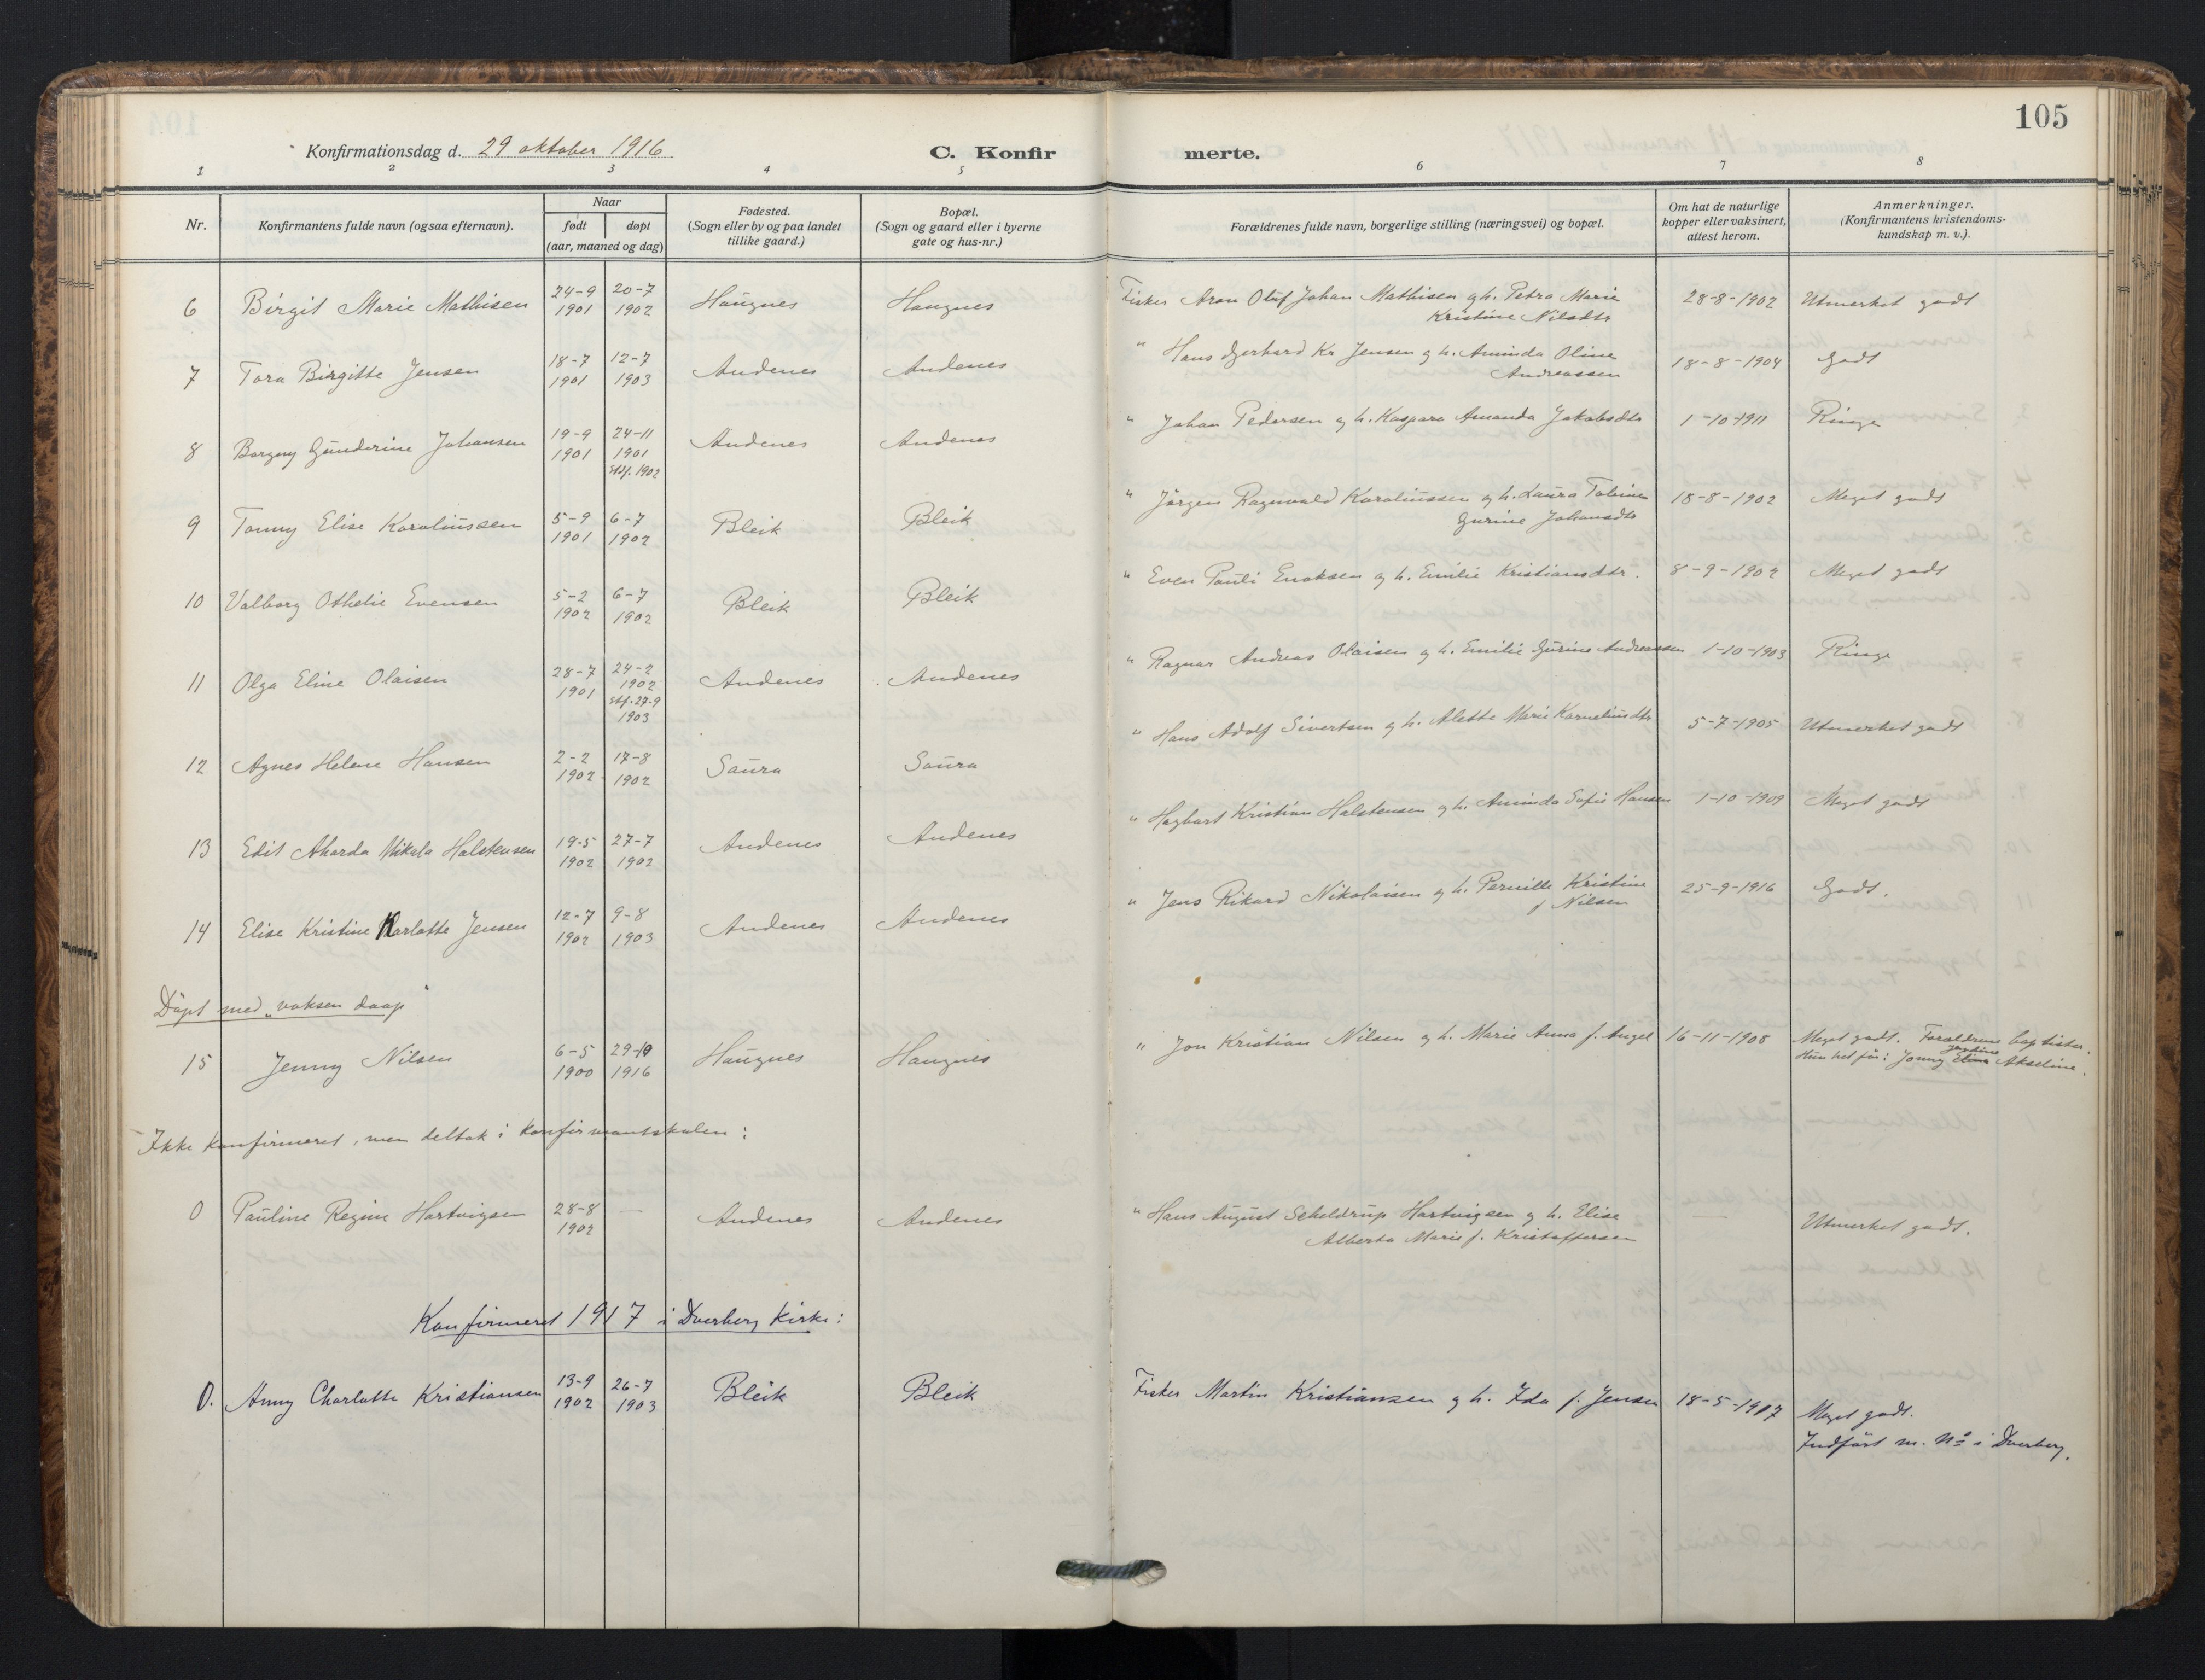 105
Konfirmationsdag d. 29 oktober 1916
C. Konfir merte.
1 2 3 4 5 6 7 8
Nr.
Konfirmantens fulde navn (ogsaa efternavn).
Naar
født døpt
(aar, maaned og dag)
Fødested.
(Sogn eller by og paa landet
tillike gaard.)
Bopæl.
(Sogn og gaard eller i byerne
gate og hus-nr.)
Forældrenes fulde navn, borgerlige stilling (næringsvei) og bopæl.
Om hat de naturlige
kopper eller vaksinert,
attest herom.
Anmerkninger.
(Konfirmantens kristendoms-
kundskap m. v.).
6 Birgit Marie Mathisen 24-9 1901 20-7 1902 Haugnes Haugnes Fisker Aron Oluf Johan Mathisen og h. Petra Marie 28-8-1902 Utmerket godt
Kristine Nilsdtr
7 Tora Birgitte Jensen 18-7 1901 12-7 1903 Andenes Andenes " Hans Gerhard Kr Jensen og h. Aminda Oline 18-8-1904 Godt
Andreassen
8 Borgny Gunderine Johansen 19-9 1901 24-11 1901 stdf. 1902 Andenes Andenes " Johan Pedersen og h. Kaspara Amanda Jakobsdtr 1-10-1911 Ringe
9 Tonny Elise Karoliussen 5-9 1901 6-7 1902 Bleik Bleik " Jörgen Ragnvald Karoliussen og h. Laura Tobine 18-8-1902 Meget godt
Gurine Johansdtr
10 Valborg Othelie Evensen 5-2 1902 6-7 1902 Bleik Bleik " Even Pauli Enoksen og h. Emilie Kristiansdtr. 8-9-1902 Meget godt
11 Olga Eline Olaisen 28-7 1901 24-2 1902 stf. 27-9 1903 Andenes Andenes " Ragnar Andreas Olaisen og h. Emilie Gurine Andreassen 1-10-1903 Ringe
12 Agnes Helene Hansen 2-2 1902 17-8 1902 Saura Saura " Hans Adolf Sivertsen og h. Alette Marie Karneliusdtr 5-7-1905 Utmerket godt
13 Edit Aharda Mikala Halstensen 19-5 1902 27-7 1902 Andenes Andenes " Hagbart Kristian Halstensen og h. Aminda Sofie Hansen 1-10-1909 Meget godt
14 Elise Kristine Karlotte Jensen 12-7 1902 9-8 1903 Andenes Andenes " Jens Rikard Nikolaisen og h. Pernille Kristine 25-9-1916 Godt.
f Nilsen
Döpt med "voksen daap"
15 Jenny Nilsen 6-5 1900 29-10 1916 Haugnes Haugnes " Jon Kristian Nilsen og h. Marie Anna f. Angel 16-11-1908 Meget godt. Forældrene baptister.
Hun het før: Jonny Elina Akseline.
Ikke konfirmeret, men deltok i konfirmantskolen:
0 Pauline Regine Hartvigsen 28-8 1902 — Andenes Andenes " Hans August Scheldrup Hartvigsen og h. Elise Utmerket godt.
Alberta Marie f. Kristoffersen
Konfirmeret 1917 i Dverberg kirke:
0. Anny Charlotte Kristiansen 13-9 1902 26-7 1903 Bleik Bleik Fisker Martin Kristiansen og h. Ida f. Jensen 18-5-1917 Meget godt.
Indført m. No i Dverberg.